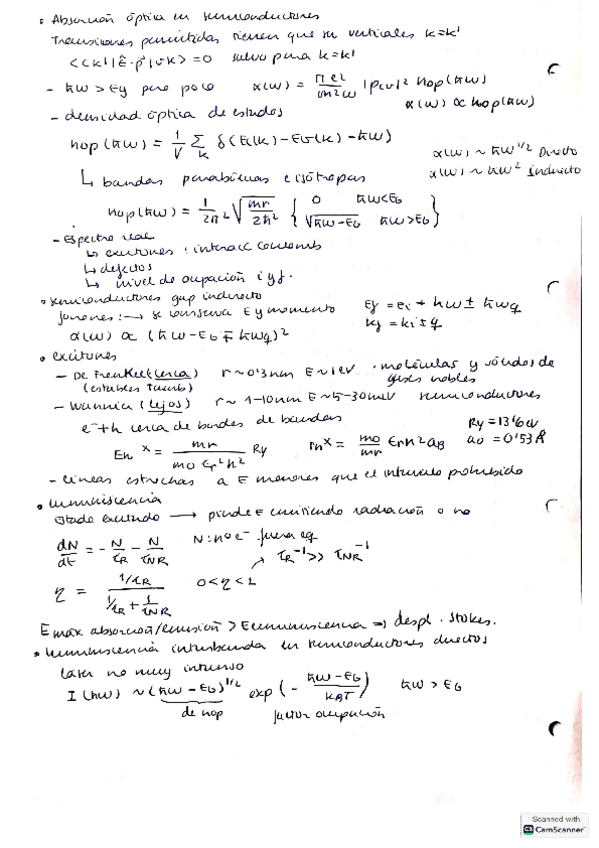 • Absorción óptica en semiconductores
Transiciones permitidas tienen que ser verticales k=k'
<ck'|ê·p|vk> = 0 salvo para k=k'
- ħω > Eg pero poco α(ω) = πe²/m²ω |Pcv|² nop(ħω)
α(ω) ∝ nop(ħω)
- densidad óptica de estados
nop(ħω) = 1/V Σk δ(Ec(k) - Ev(k) - ħω)
α(ω) ~ ħω^1/2 Directo
α(ω) ~ ħω² Indirecto
↳ bandas parabólicas e isótropas
nop(ħω) = 1/2π² √mr/2ħ² { 0 ħω<EG
√ħω-EG ħω>EG }
- Espectro real
↳ excitones: interacc Coulomb
↳ defectos
↳ nivel de ocupación i y f.
• Semiconductores gap indirecto
fonones: → se conserva E y momento
Ef = ei + ħω ± ħωq
kf = ki ± q
α(ω) ∝ (ħω - EG ∓ ħωq)²
• excitones
- De Frenkel (cerca) r~0'3nm E~1eV · moléculas y sólidos de gases nobles
(estables Tamb)
- Wannier (lejos) r~1-10nm E~5-30meV semiconductores
e⁻+h cerca de bordes de bandas
Ry = 13'6eV
a0 = 0'53Å
En^x = mr/m0 εr² n² Ry rn^x = m0/mr εr n² aB
- líneas estrechas a E menores que el intervalo prohibido
• luminiscencia
estado excitado → pierde E emitiendo radiación o no
dN/dt = -N/τR - N/τNR N: nº e⁻ fuera eq
τR⁻¹ >> τNR⁻¹
η = 1/τR / 1/τR + 1/τNR 0<η<1
E máx absorción/emisión > E luminiscencia ⇒ despl. Stokes.
• luminiscencia interbanda en semiconductores directos
láser no muy intenso
I(ħω) ~ (ħω - EG)^1/2 exp(- ħω-EG/kBT) ħω > EG
de nop factor ocupación
Scanned with
CS CamScanner